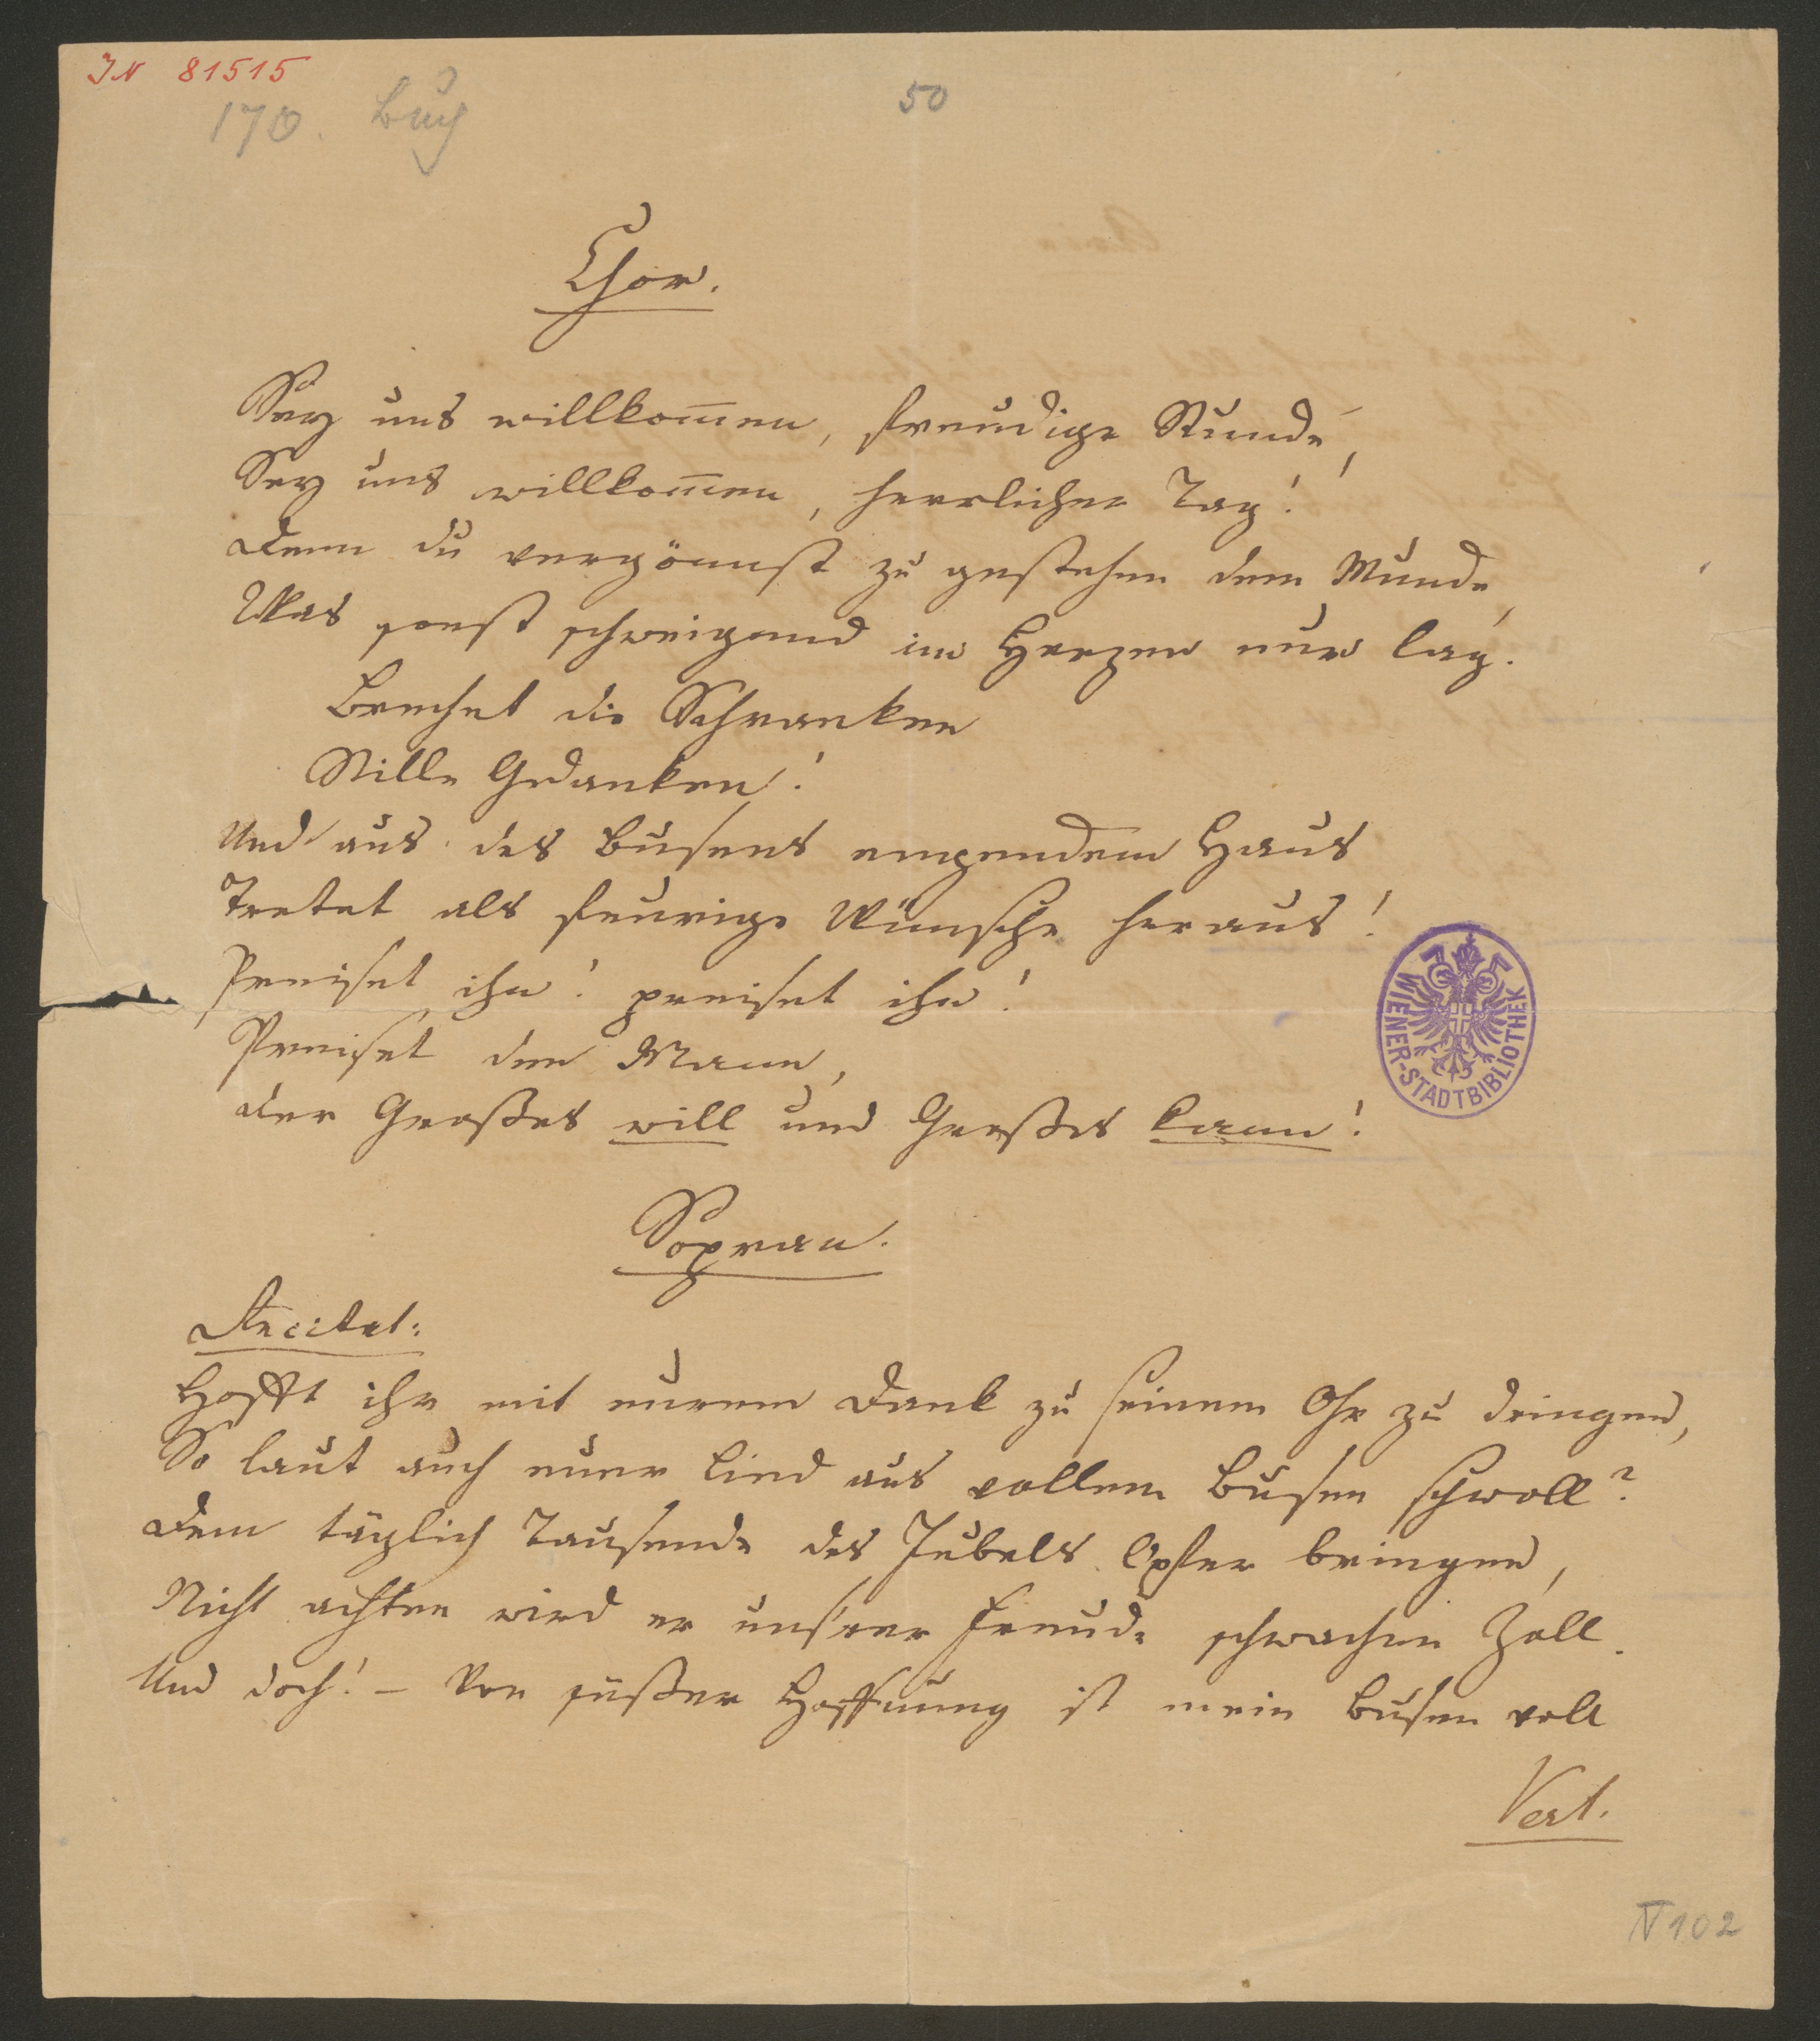 IN 81515
170. Buch
50
Chor.
Sey uns willkom̅en, freudige Stunde,
Sey uns willkom̅en, herrlicher Tag!
Denn du vergönnst zu gestehen dem Munde,
Was sonst schweigend im Herzen nur lag.
Brechet die Schranken
Stille Gedanken!
Und aus des Busens engendem Haus
Tretet als feurige Wünsche heraus!
Preiset ihn! preiset ihn!
Preiset den Mann,
Der Großes will und Großes kann!
WIENER-STADTBIBLIOTHEK
Sopran.
Recitat:
Hofft ihr mit eurem Dank zu seinem Ohr zu dringen,
So laut auch euer Lied aus vollem Busen schwoll?
Dem täglich Tausende des Jubels Opfer bringen,
Nicht achten wird er uns'rer Freude schwachen Zoll.
Und doch! – Von süßer Hoffnung ist mein Busen voll
Vert.
N 102